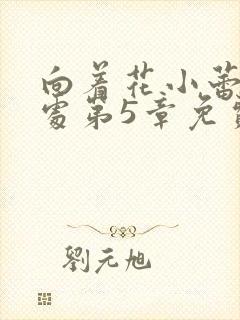 向着花小蕾
处第5章免费
刘元旭